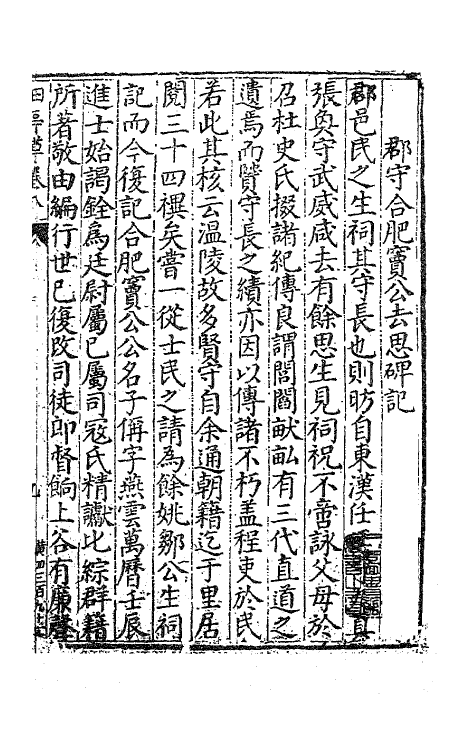 郡守合肥竇公去思碑記
郡邑民之生祠其守長也則昉自東漢任
張奐守武威咸去有餘思生見祠祝不啻詠父母於
召杜史氏掇諸紀傳良謂閭閻畎畝有三代直道之
遺焉而贊守長之績亦因以傳諸不朽蓋程吏於民
若此其核云溫陵故多賢守自余通朝籍迄于里居
閱三十四禩矣嘗一從士民之請為餘姚鄒公生祠
記而今復記合肥竇公公名子偁字燕雲萬曆壬辰
進士始謁銓為廷尉屬已屬司寇氏精讞比綜群籍
所著敬由編行世已復改司徒郎督餉上谷有廉聲